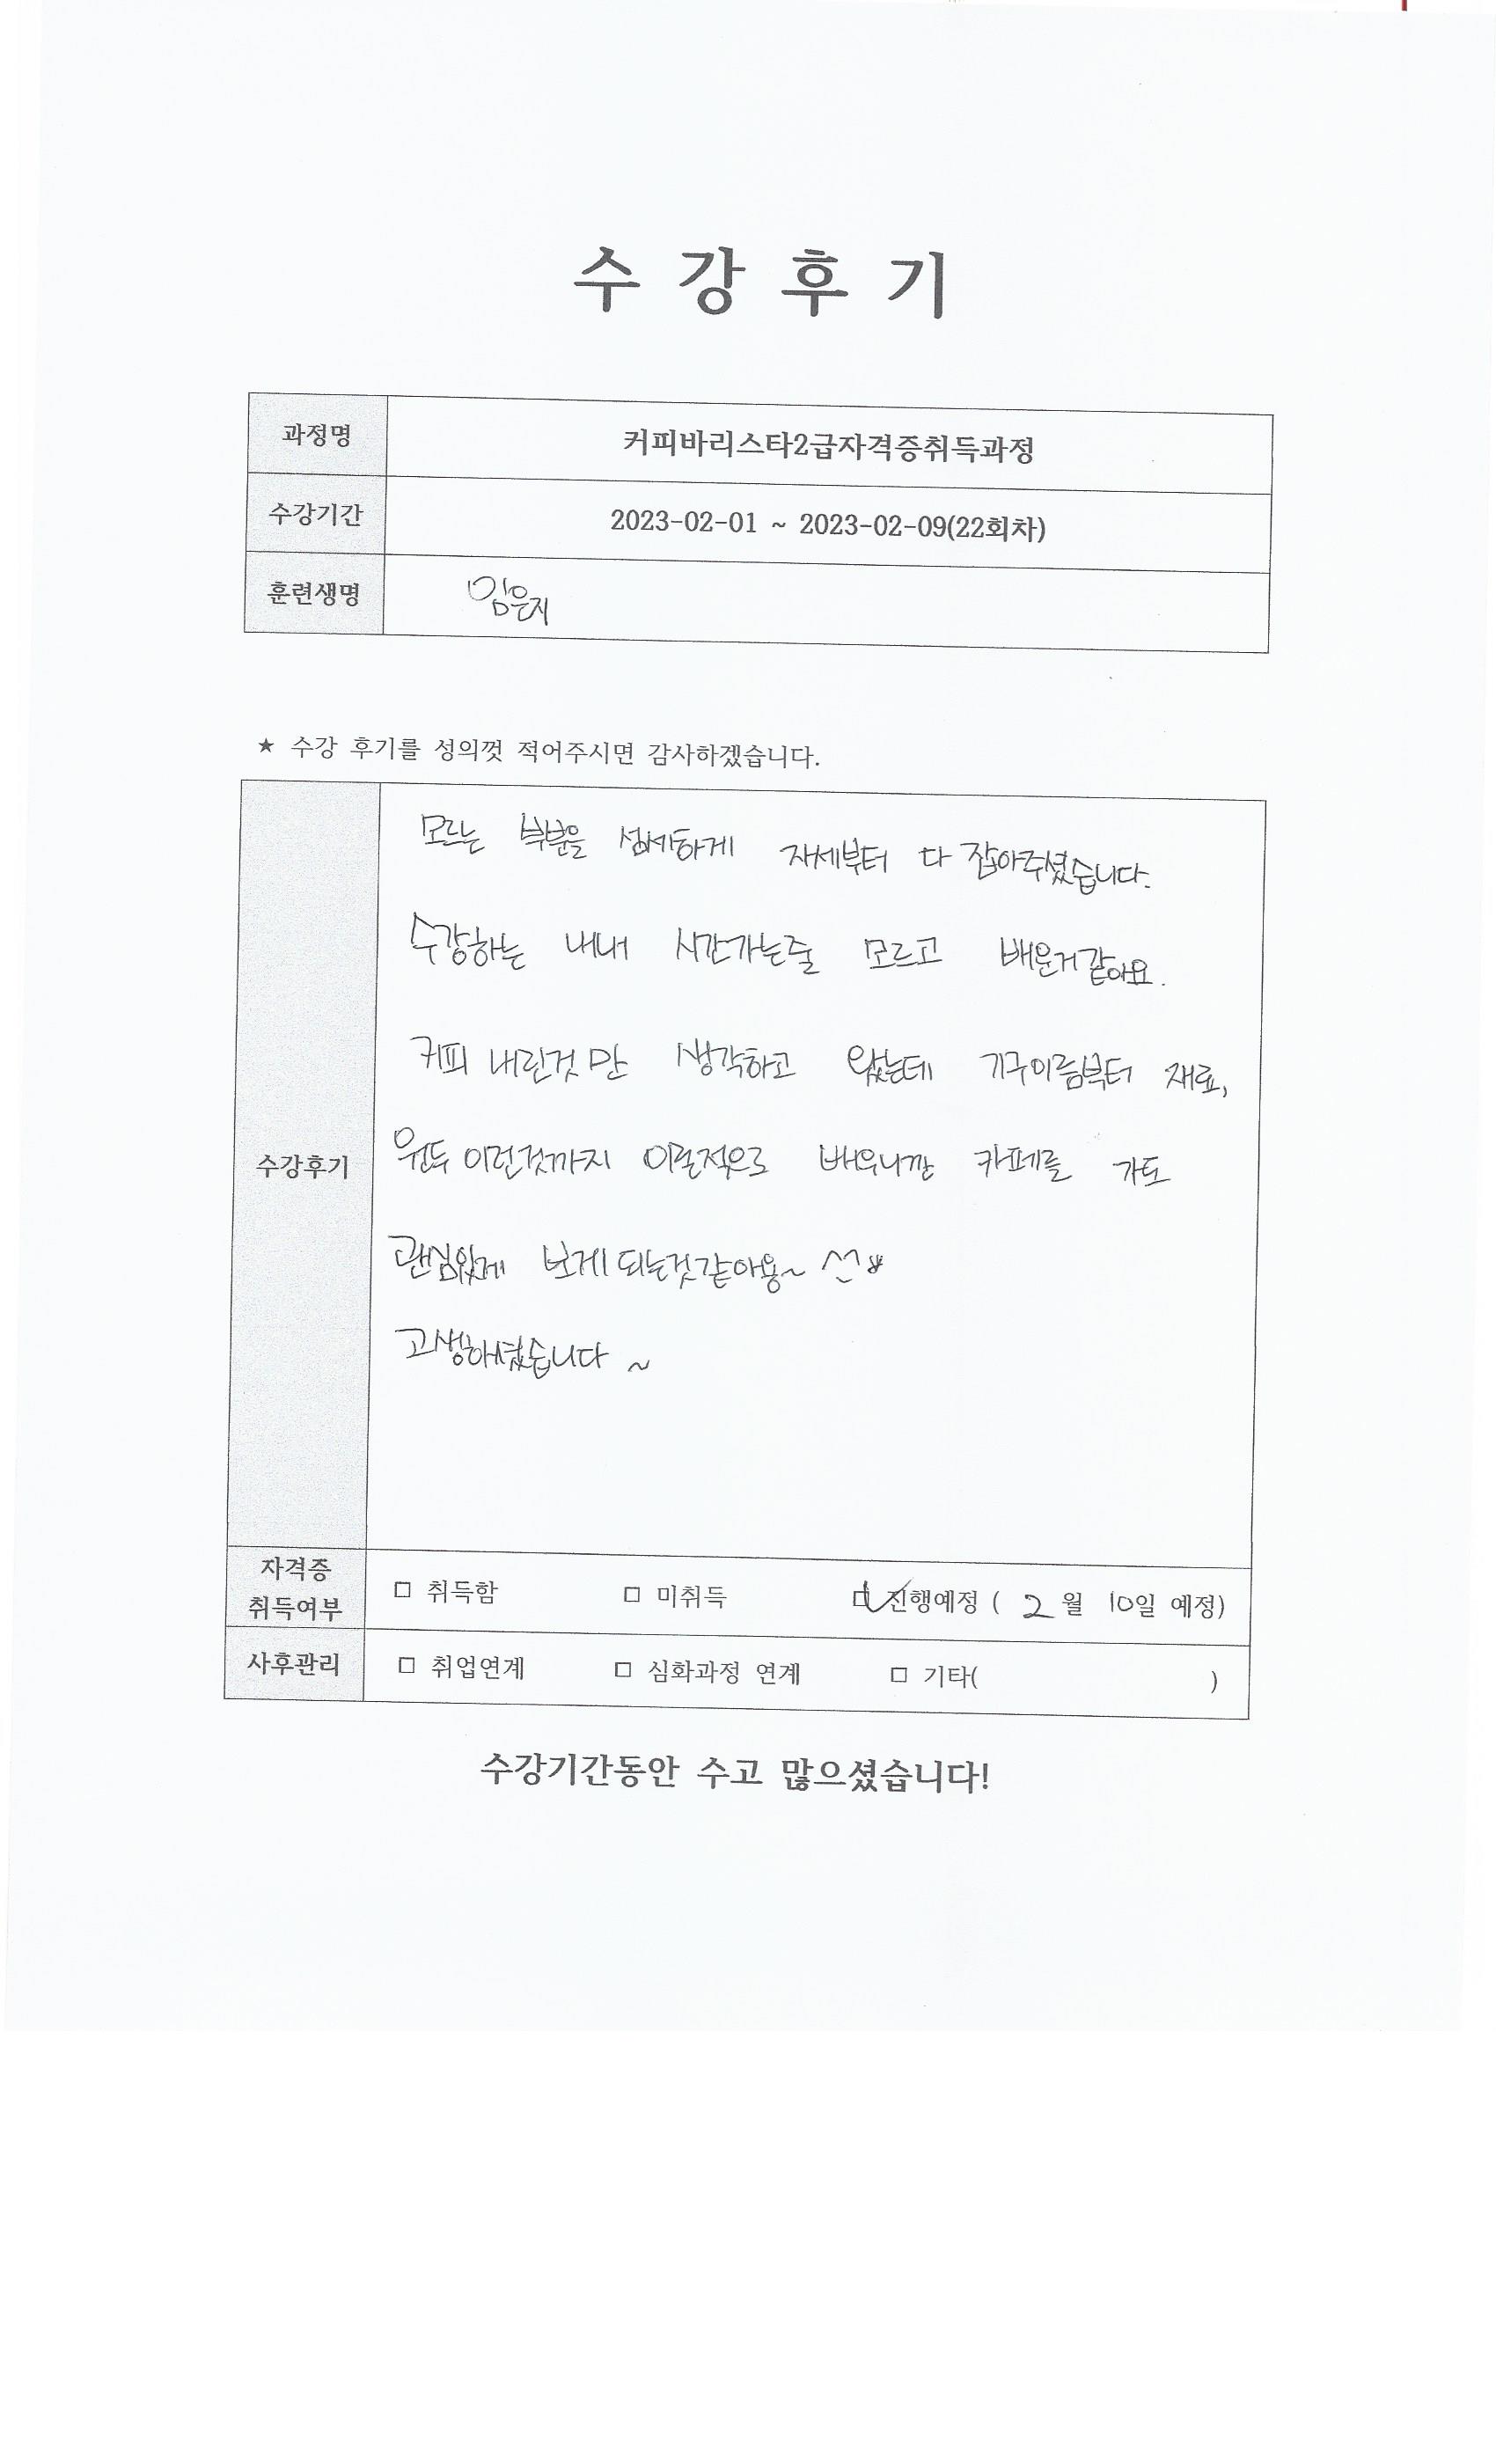 수 강 후 기
과정명 커피바리스타2급자격증취득과정
수강기간 2023-02-01 ~ 2023-02-09(22회차)
훈련생명 임은지
★ 수강 후기를 성의껏 적어주시면 감사하겠습니다.
모르는 부분을 섬세하게 자세부터 다 잡아주셨습니다.
수강하는 내내 시간가는줄 모르고 배운거같아요.
커피 내린것 만 생각하고 있었는데 기구이름부터 재료,
수강후기
원두 이런것까지 이론적으로 배우니깐 카페를 가도
관심있게 보게 되는것같아용~ ^^
고생하셨습니다 ~
자격증
취득여부
□ 취득함 □ 미취득 ☑ 진행예정 ( 2월 10일 예정)
사후관리 □ 취업연계 □ 심화과정 연계 □ 기타( )
수강기간동안 수고 많으셨습니다!